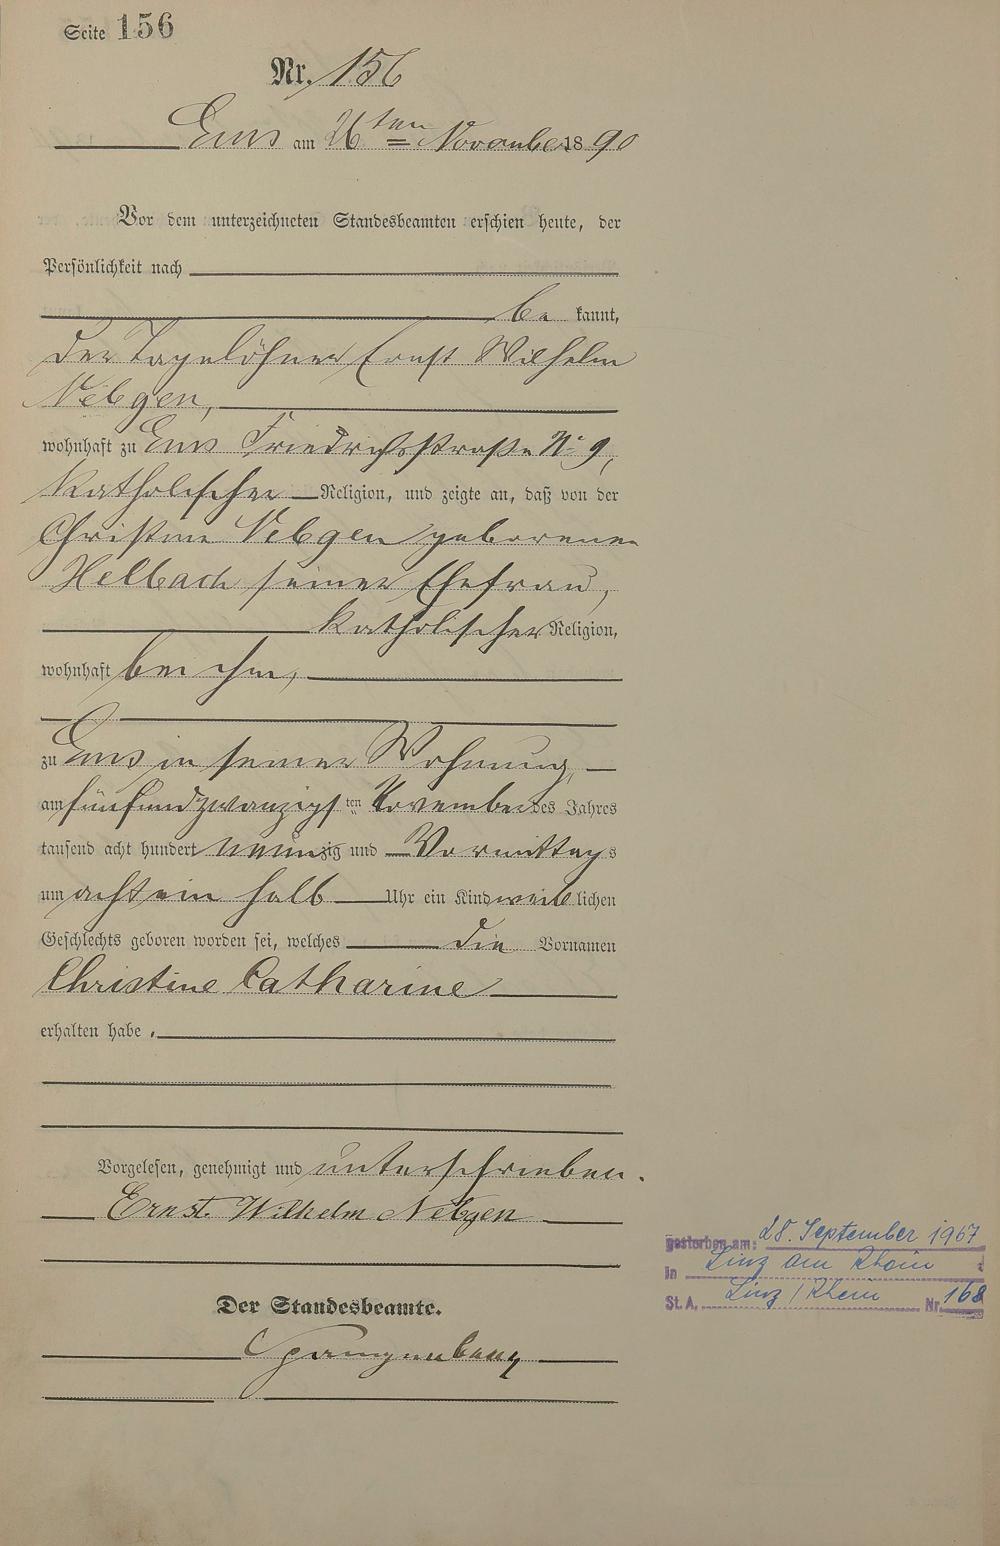 Seite 156
Nr. 156
Ems am 26ten November 1890
Vor dem unterzeichneten Standesbeamten erschien heute, der
Persönlichkeit nach
be kannt,
der Tagelöhner Ernst Wilhelm
Nebgen,
wohnhaft zu Ems Friedrichsstraße No 9,
katholischer Religion, und zeigte an, daß von der
Christine Nebgen geborenen
Helbach seiner Ehefrau,
katholischer Religion,
wohnhaft bei ihm,
zu Ems in seiner Wohnung,
am fünfundzwanzigsten November des Jahres
tausend acht hundert neunzig und Vormittags
um acht ein halb Uhr ein Kind weiblichen
Geschlechts geboren worden sei, welches die Vornamen
Christine Catharine
erhalten habe.
Vorgelesen, genehmigt und unterschrieben.
Ernst. Wilhelm Nebgen
Der Standesbeamte.
Spangenberg
gestorben am: 28. September 1967
in Linz am Rhein
St. A. Linz / Rhein Nr. 168